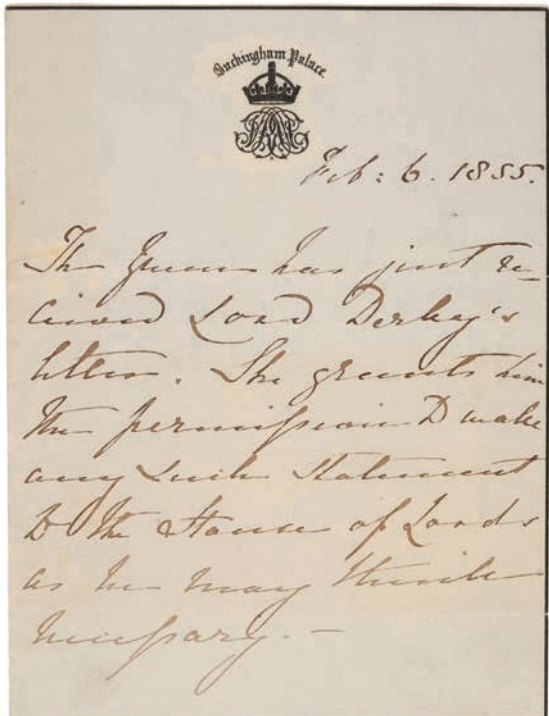 Buckingham Palace
Feb: 6. 1855.
The Queen has just re-
ceived Lord Derby's
letter. She grants him
the permission to make
any such statement
to the House of Lords
as he may think
necessary. —